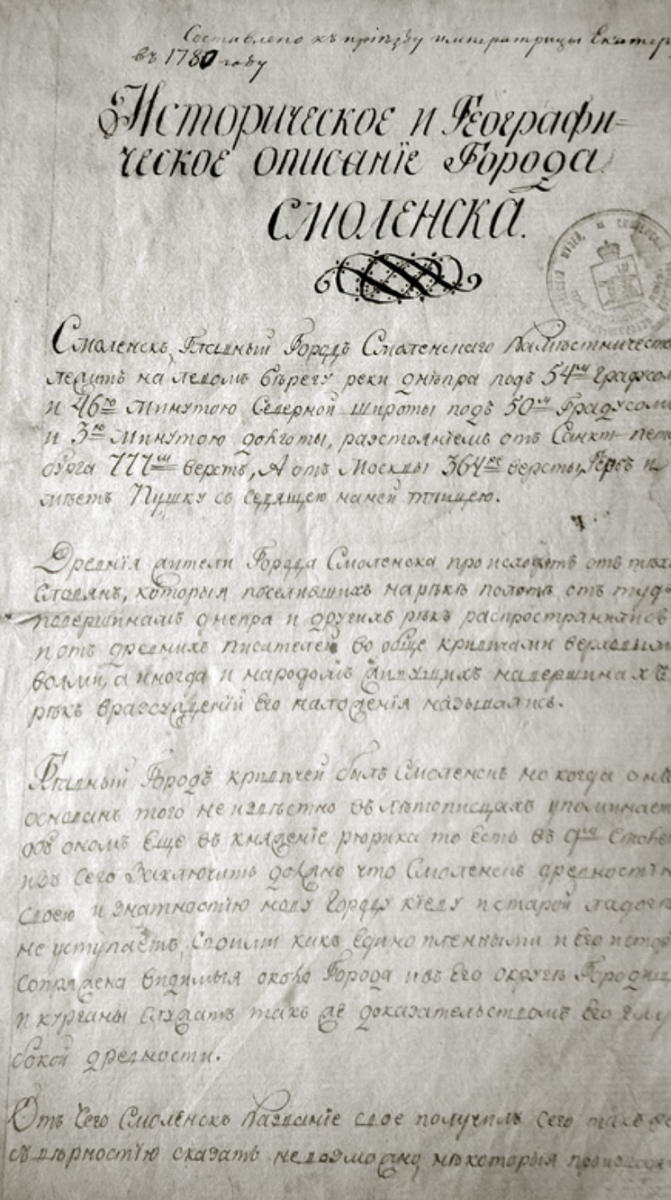 Составлено къ пріѣзду императрицы Екатер
въ 1780 году
Историческое и Географи=
ческое описанїе Города
СМОЛЕНСКА.
Смоленскъ, Главный Городъ Смоленскаго Намѣстничества
лежитъ на левомъ бѣрегу реки днѣпра подъ 54мъ Градусом
и 46ю Минутою Северной широты подъ 50мъ Градусомъ
и 3ю Минутою долготы, разстоянїемъ отъ Санкт=пете
бурга 777мь верстъ, А отъ Москвы 364ре версты, Гербъ и
мѣетъ Пушку съ седящею наней птицею.
Древнїя жители Города Смоленска происходятъ отъ тѣхъ
Славянъ, которыя поселившихъ нарѣкѣ полотѣ отъ туд
повершинамъ днепра и другихъ рѣкъ распространялис
и отъ древнихъ писателей во обще кривичами верховыми
волжи, а иногда и народомъ живущихъ навершинахъ
рѣкъ вразсужденїи его нахожденїя назывались.
Главный Городъ кривичей былъ Смоленскъ но когда онъ
основанъ того не извѣстно въ лѣтописцахъ упоминает
объ ономъ еще въ княженїе рюрика то есть въ 9мъ Столе
изъ Сего Заключить должно что Смоленскъ древностїю
своею и знатностїю Городу кїеву и старой ладоге
не уступаетъ, Своими какъ едино племенными и его истор
сопряжена видимыя около Города ивъ его округѣ Городищ
и курганы служатъ такъ же доказательствомъ его глу
бокой древности.
Отъ Чего Смоленскъ Названїе свое получилъ Сего такъ же
съ вѣрностїю сказать невозможно нѣкоторыя